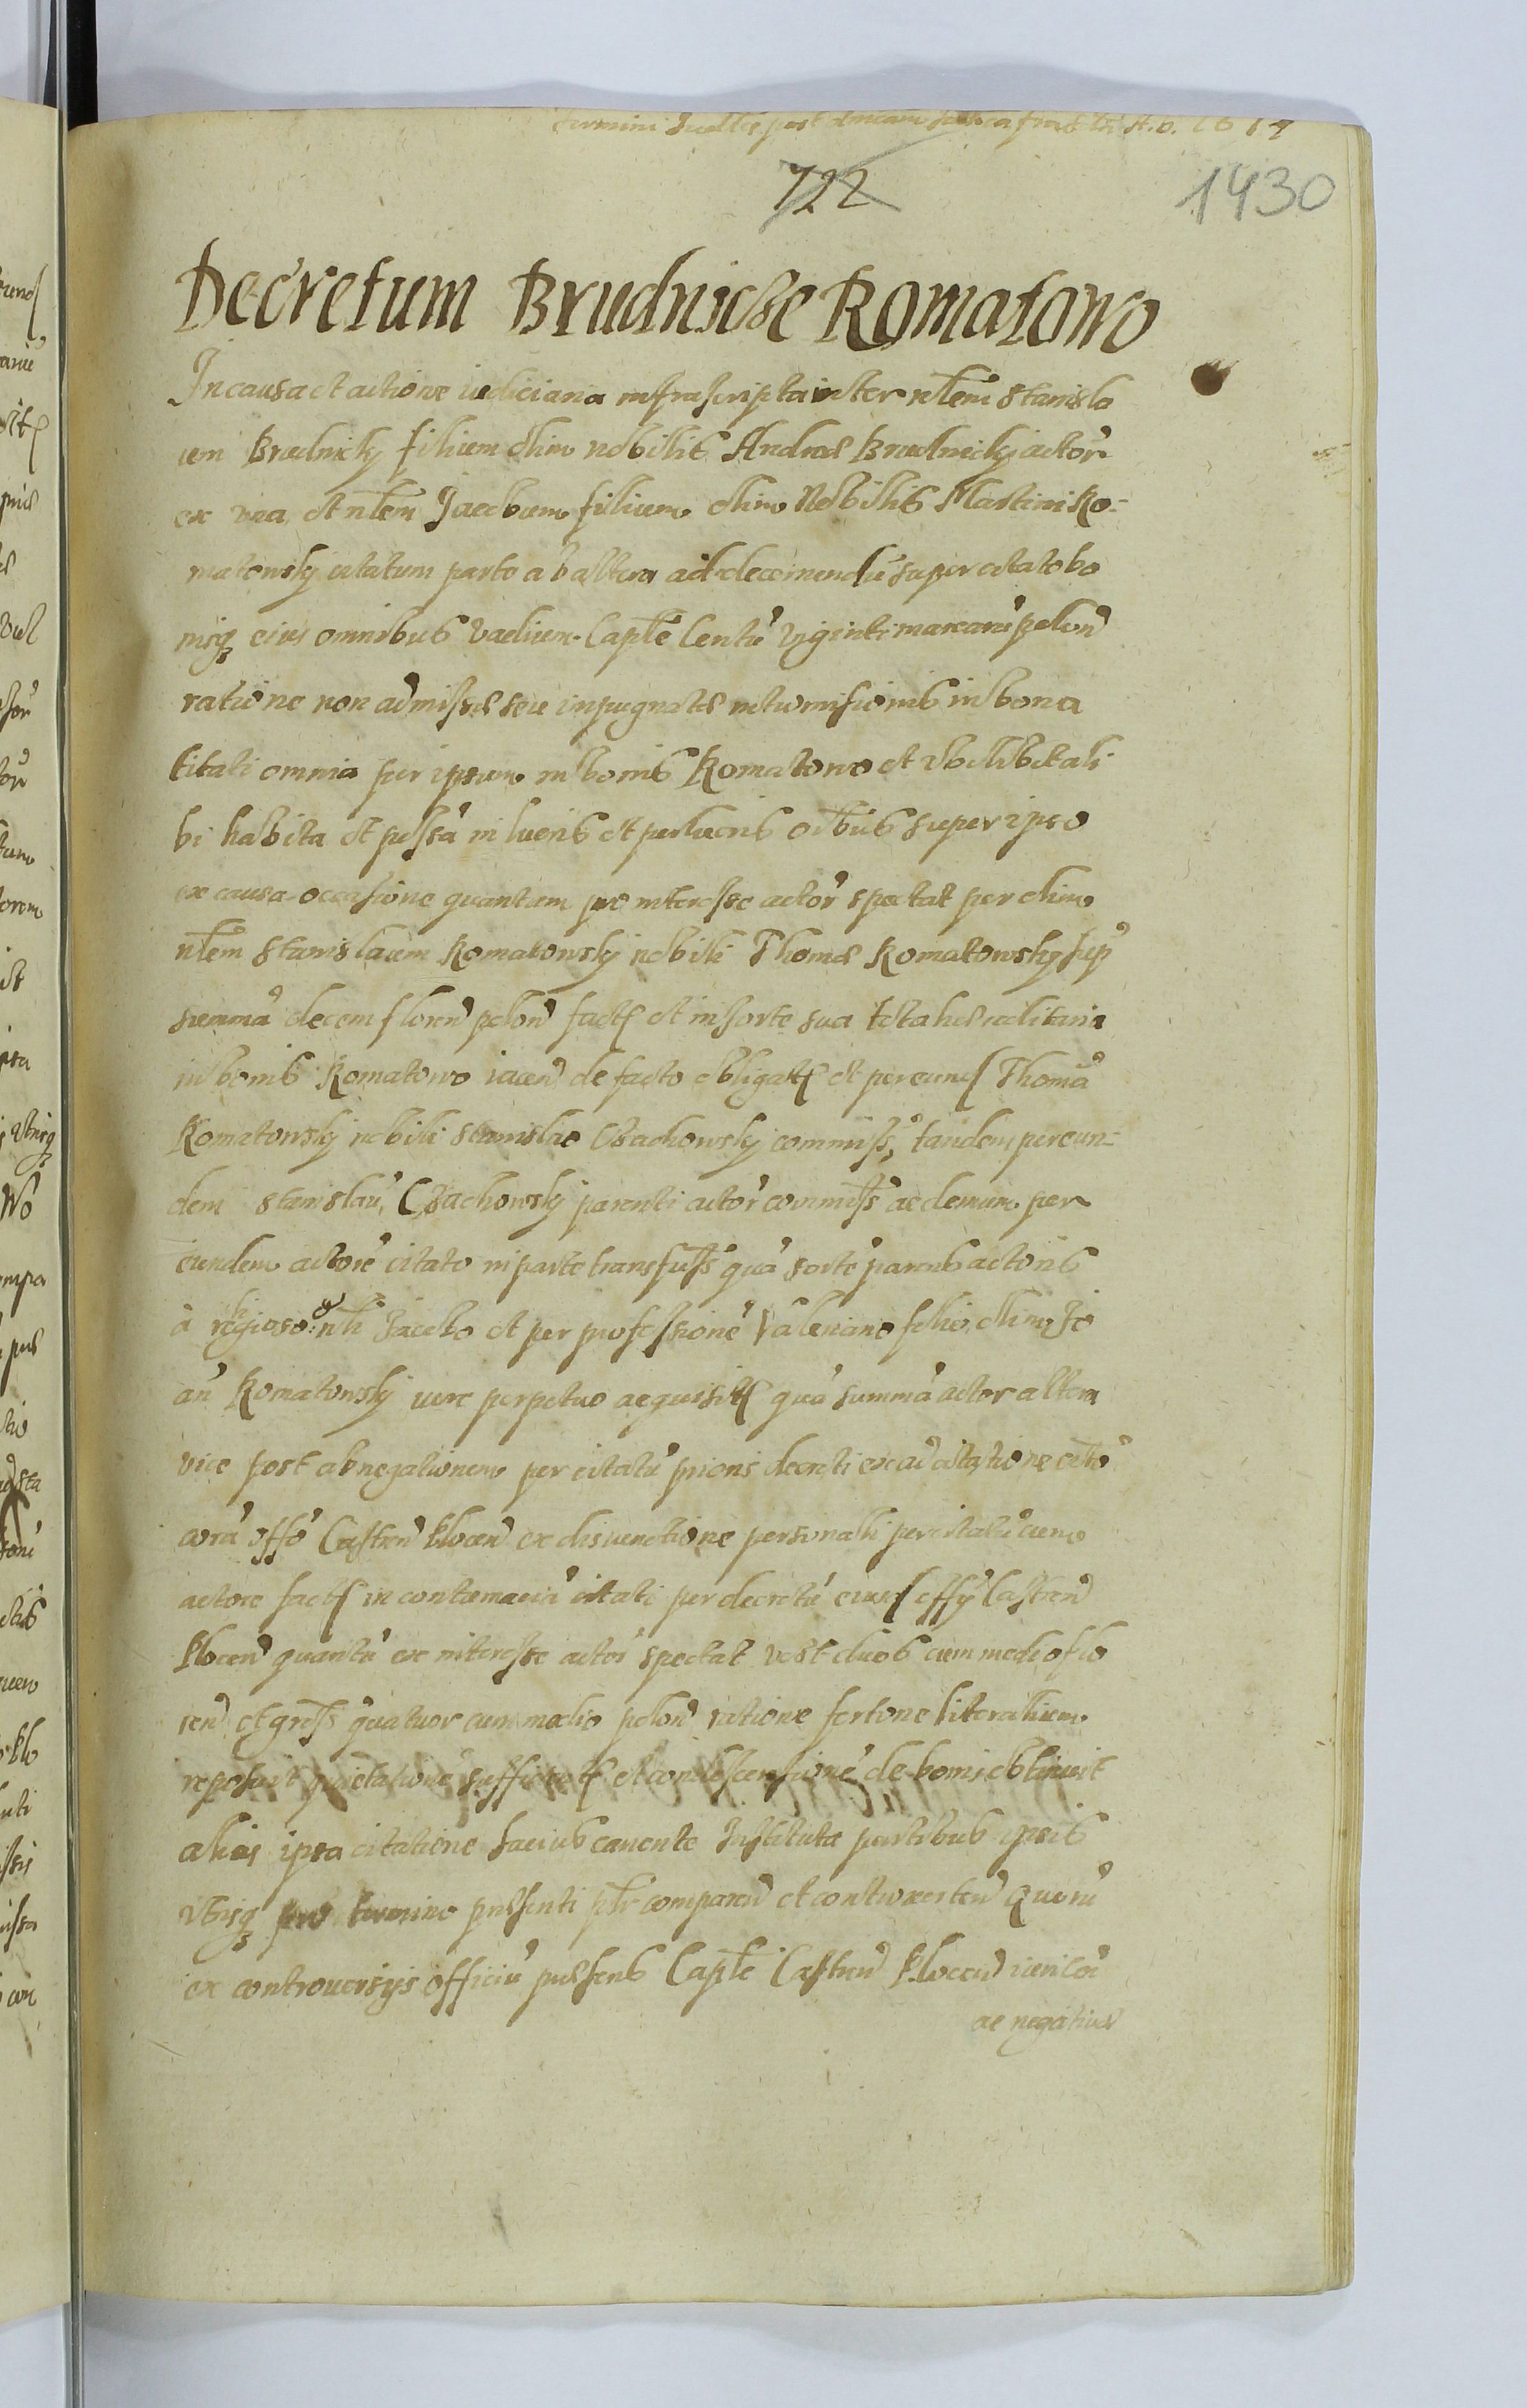 termini post A. D. 1617
722
1430
Decretum Brudnicze Romatowo
In causa et actione iudiciaria infrascripta inter nlem Stanisla
um Brudnicky filium olim nobilis Andreae Brudnicky actor
ex una et nlem Jacobum filium olim Nobilis Martini Ro-
matowsky citatum parte ab altera ad decernendũ super citato bo
nisq eius omnibus vadium Caplẽ Centũ viginti marcarũ polon
ratione non admissae seu inpugnatae intromissionis in bona
citati omnia per ipsum in bonis Romatowo et ubilibet ali
bi habita et possa in lucris et perlucris oĩbus super ipso
ex causa occasione quantum pro interesse actor spectat per olim
nlem Stanislaum Romatowsky nobili Thomae Romatowsky sup
summa decem floren polon fact et in sorte sua tota haereditaria
in bonis Romatowo iacen de facto obligat et per eund Thomã
Romatowsky nobili Stanislao Czachowsky commiss, tandem per eun-
dem Stanislaũ Czachowsky parenti actor commiss ac demum per
eundem actorẽ citato in parte transfuss quã sortẽ parens actoris
à nli Jacobo et per professionẽ Valeriano filio olim Jo
an Romatowsky iure perpetuo acquisit quã summã actor altera
vice post abnegationem per citatũ prioris decreti ex ad citatione
corã offo Castren Plocen ex disiunctione personali per citatũ cum
actore fact in contumaciã citati per decretũ eiusd offy Castren
Plocen quantũ ex interesse actor spectat duos cum medio flo
ren et gross quatuor cum medio polon ratione fertone literalium
reposuit quietationẽ et condescensionẽ de bonis obtinuit
alias ipsa citatione lacius canente Instituta partibus ipsis
utrisq pro termino praesenti plr comparen et controverten quorũ
ex controversys officiũ praesens Caple Castren Plocen
ac negativa